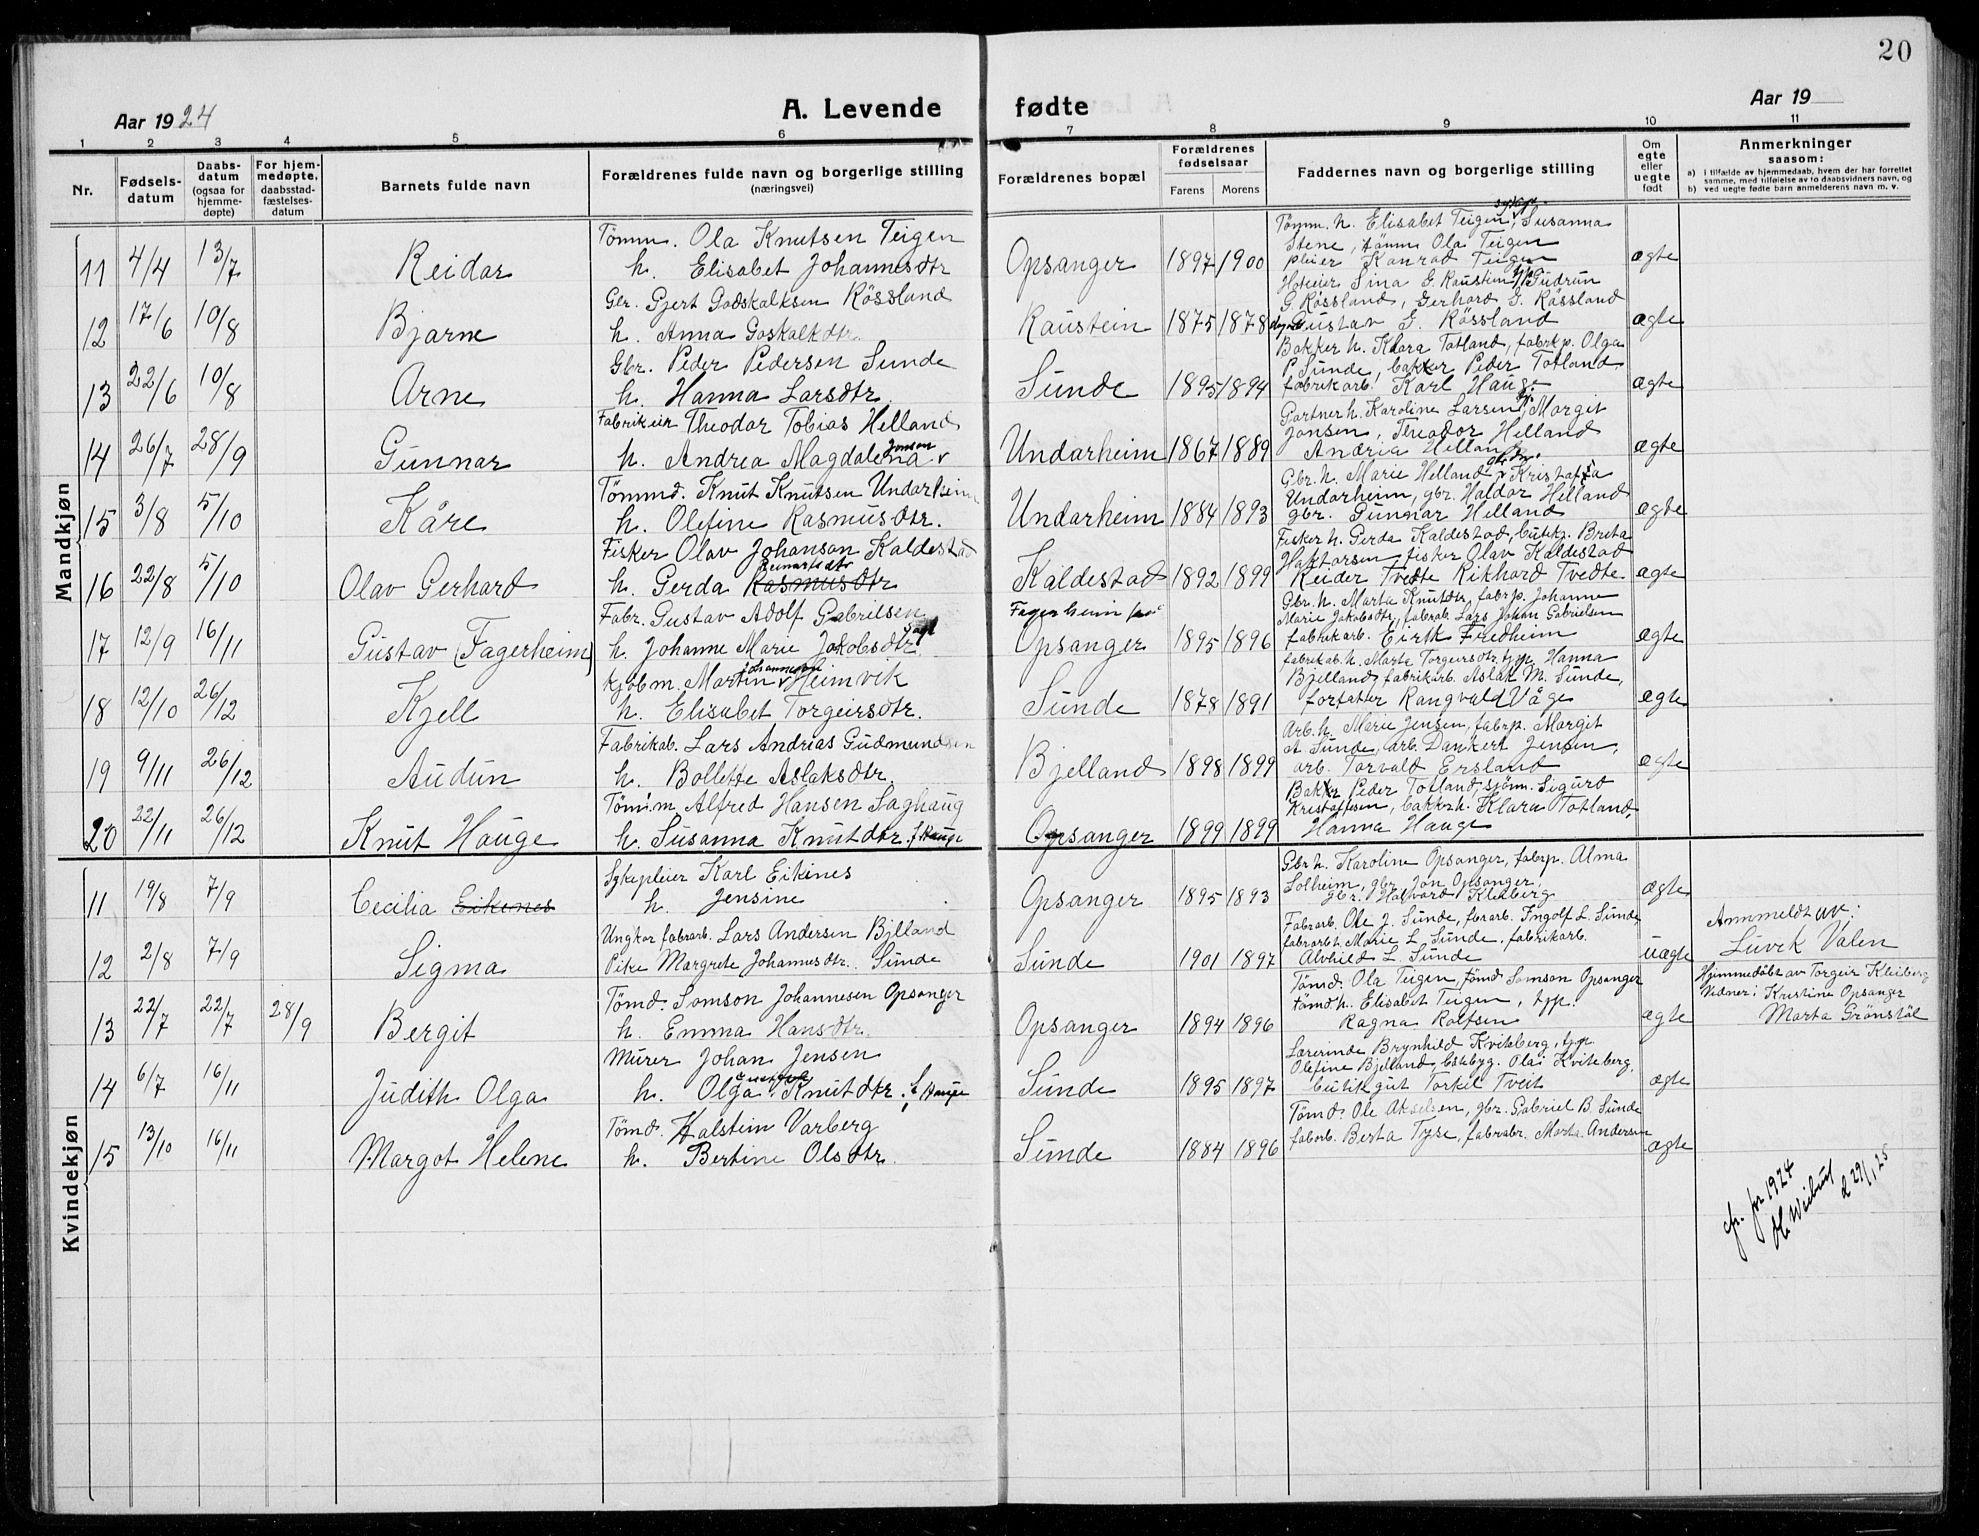 20
Aar 1924
A. Levende
fødte
Aar 19
1 2 3 4 5 6 7 8 9 10 11
Nr.
Fødsels-
datum
Daabs-
datum
(ogsaa for
hjemme-
døpte)
For hjem-
medøpte.
daabsstad-
fæstelses-
datum
Barnets fulde navn
Forældrenes fulde navn og borgerlige stilling
(næringsvei)
Forældrenes bopæl
Forældrenes
fødselsaar
Farens Morens
Faddernes navn og borgerlige stilling
Om
egte
eller
uegte
født
Anmerkninger
saasom:
a) i tilfælde av hjemmedaab, hvem der har forrettet
samme, med tilføielse av to daabsvidners navn, og
b) ved uegte fødte barn anmelderens navn m. v.
Mandkjøn
11 4/4 13/7 Reidar
Tømm. Ola Knutsen Teigen
h. Elisabet Johannesdtr
Opsanger 1897 1900
Tømm. h. Elisabet Teigen, Susanna
Stene, tømm Ola Teigen
pleier Konrad Teigen
ægte
12 17/6 10/8 Bjarne
Gbr. Gjert Godskalksen Røssland
h. Anna Goskalkdtr.
Raustein 1875 1878
Hoteier Sina G. Raustein, Gudrun
G. Røssland, Gerhard G. Røssland
Gustav G. Røssland
ægte
13 22/6 10/8 Arne
Gbr. Peder Pedersen Sunde
h. Hanna Larsdtr.
Sunde 1895 1894
Bakker h. Klara Totland, fabrkp. Olga
P. Sunde, bakker Peder Totland
fabrikarb. Karl Hauge
ægte
14 26/7 28/9 Gunnar
Fabrikeier Theodor Tobias Helland
h. Andrea Magdalena Jonson
Undarheim 1867 1889
Gartner h. Karoline Larsen, Margit
Jonsen, Theodor Helland
Andrea Hellan
ægte
15 3/8 5/10 Kåre
Tømmd. Knut Knutsen Undarheim
h. Olefine Rasmusdtr.
Undarheim 1884 1893
Gbr. h. Marie Helland, Kristaffa
Undarheim, gbr. Haldor Helland
gbr. Gunnar Helland
ægte
16 22/8 5/10 Olav Gerhard
Fisker Olav Johanson Kaldestad
h. Gerda Rasmusdtr
Kaldestad 1892 1899
Fisker h. Gerda Kaldestad, butikj. Brita
Haktorsen, fisker Olav Kaldestad
Reider Tvedte Rikhard Tvedte
ægte
17 12/9 16/11 Gustav (Fagerheim)
Fabr. Gustav Adolf Gabrielsen
h. Johanne Marie Jakobsdtr
Fagerheim
Opsanger 1895 1896
Gbr. h. Marta Knutdtr, fabrp. Johanne
Marie Jakobsdtr, fabrab. Lars Johan Gabrielsen
fabrikarb. Eirik Fredheim
ægte
18 12/10 26/12 Kjell
Kjøbm. Martin Johannesen Heimvik
h. Elisabet Torgeirsdtr.
Sunde 1878 1891
fabrikab. h. Marta Torgeirsdtr, tjp. Hanna
Bjelland, fabrikarb. Aslak M. Sunde,
forfatter Rangvald Våge
ægte
19 9/11 26/12 Audun
Fabrikab. Lars Andrias Gudmundsen
h. Bollette Aslaksdtr.
Bjelland 1898 1899
Arb. h. Marie Jensen, fabrp. Margit
A Sunde, arb. Dankert Jensen,
arb. Torvald Ersland
ægte
20 22/11 26/12 Knut Hauge
Tømm. Alfred Hansen Saghaug
h. Susanna Knutdtr. f. Hauge
Opsanger 1899 1899
Bakker Peder Totland, sjøm. Sigurd
Kristoffesen, bakkerh. Klara Totland,
Hanna Hauge
Kvindekjøn
11 19/8 7/9 Cecilia Eikenes
Sykepleier Karl Eikenes
h. Jensine
Opsanger 1895 1893
Gbr h. Karoline Opsanger, fabrp. Alma
Solheim, gbr. Jon Opsanger,
gbr. Halvard Kleiberg
ægte
12 2/8 7/9 Sigma
Ungkar fabrarb. Lars Andersen Bjlland
Pike Margrete Johannesdtr. Sunde
Sunde 1901 1897
Fabrarb. Ole J. Sunde, fbrarb. Ingolf L. Sunde,
fabrarb h. Marie L Sunde, fabrikarb.
Alvhild L. Sunde
uægte
Anmeldt av:
Luvik Valen
13 22/7 22/7 28/9 Bergit
Tømd. Samson Johannesen Opsanger
h. Emma Hansdtr.
Opsanger 1894 1896
Tømd. Ola Teigen, tømd Samson Opsanger
tømd h. Elisabet Teigen, tjp.
Ragna Rolfsen
ægte
Hjemmedøbt av Torgeir Kleiberg
Vidner: Kristine Opsanger
Marta Grønstøl
14 6/7 16/11 Judith Olga
Murer Johan Jensen
h. Olga Knutdtr. f. Hauge
Sunde 1895 1897
Lærerinde Brynhild Kviteberg, tjp
Olefine Bjelland, båtbyg. Ola Kviteberg,
butikgut Torkel Tveit
ægte
15 13/10 16/11 Margot Helene
Tømd. Halstein Varberg
h. Bertine Olsdtr.
Sunde 1884 1896
Tømd. Ole Akselsen, gbr. Gabriel B. Sunde
faborb. Berta Tyse, fabrabr. Marta Andersen
ægte
for 1924
29/1 25